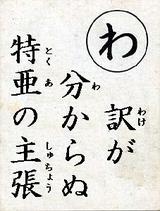 わ
訳が
分からぬ
特亜の主張
わけ
わ
とくあ
しゅちょう